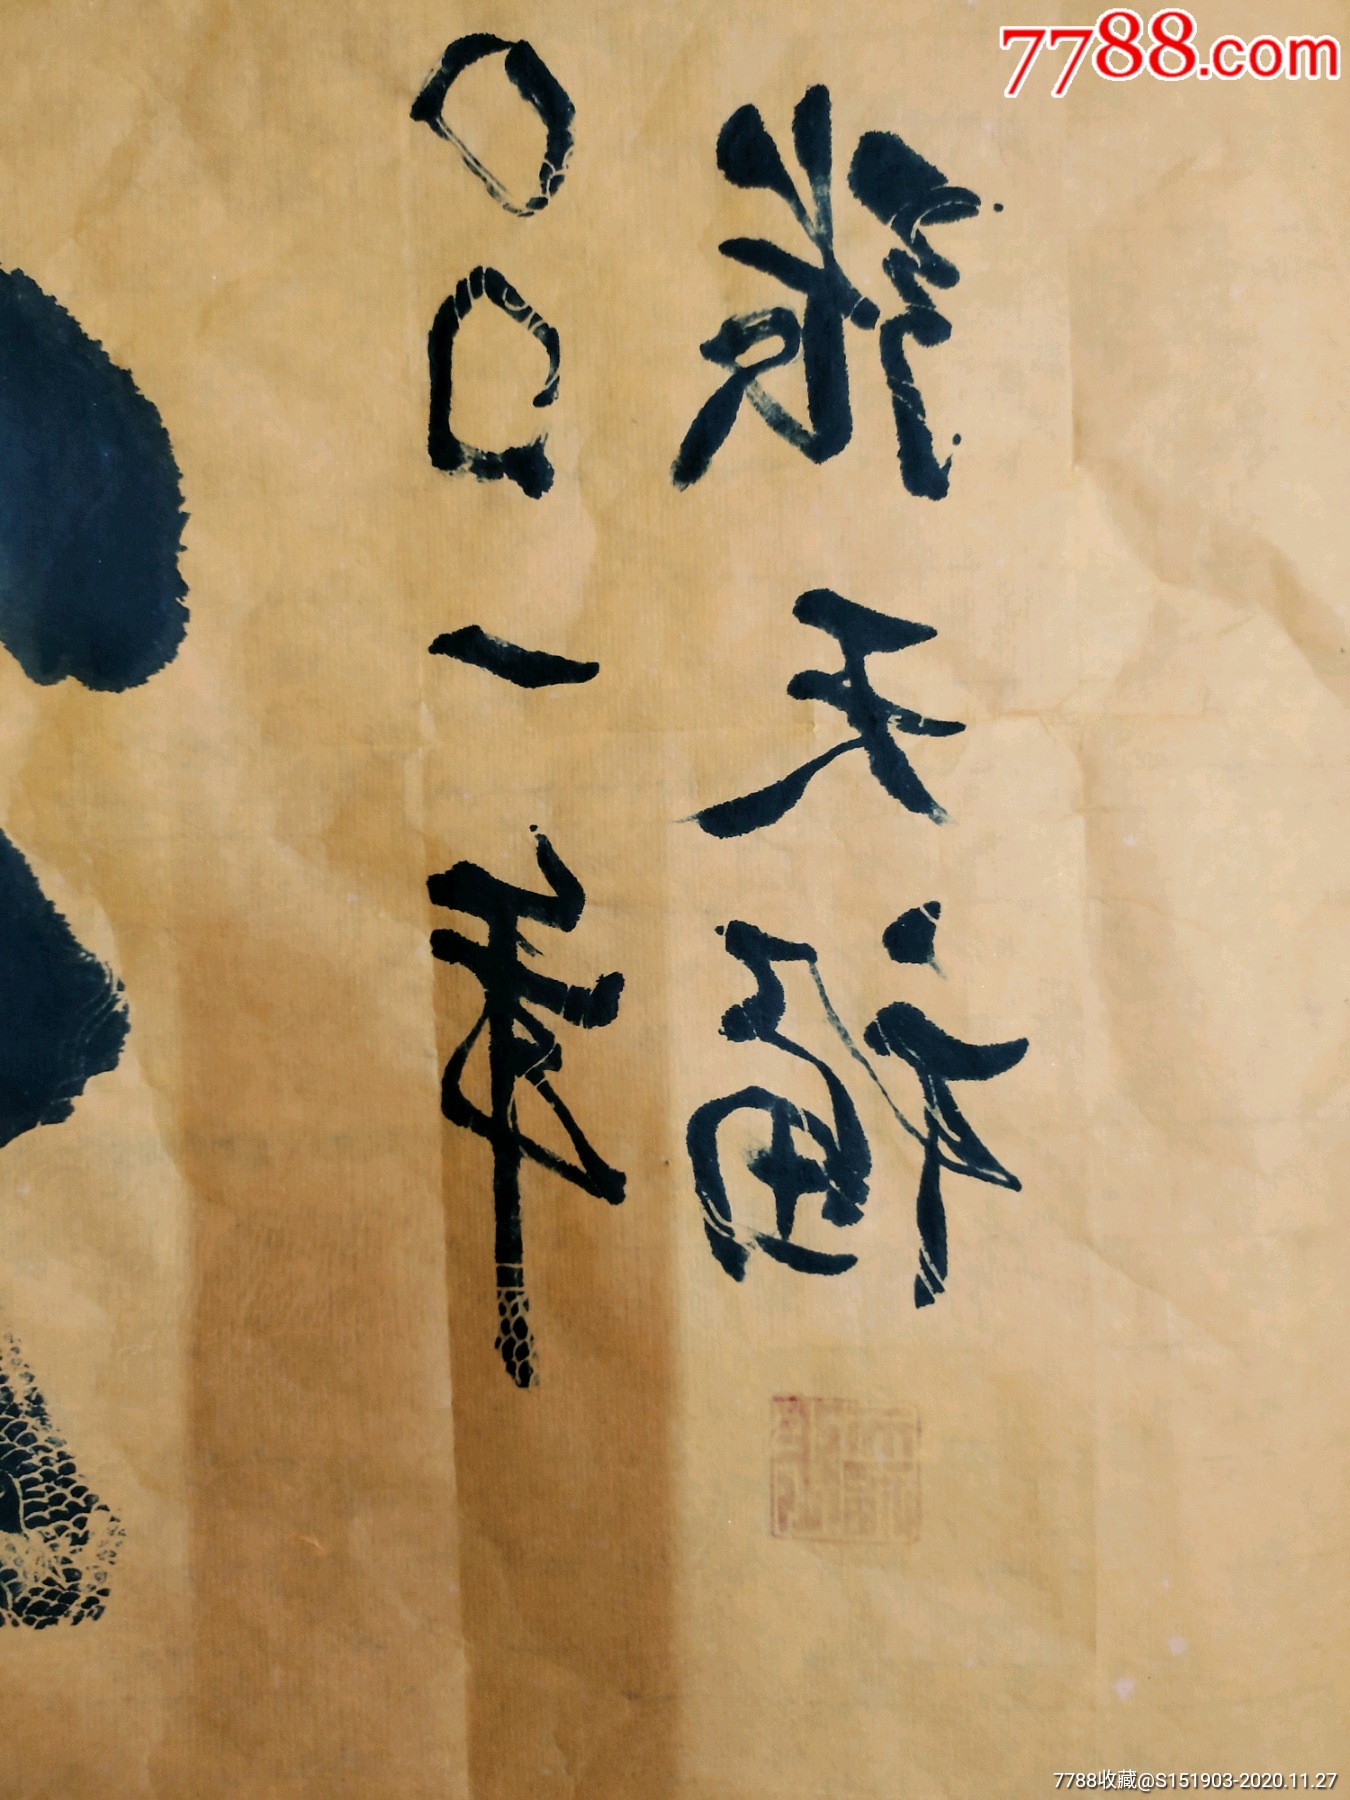 7788.com
〇〇一年
张天福
7788收藏@S151903-2020.11.27